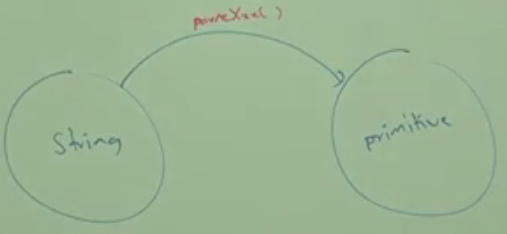 parseXxx()
String
primitive